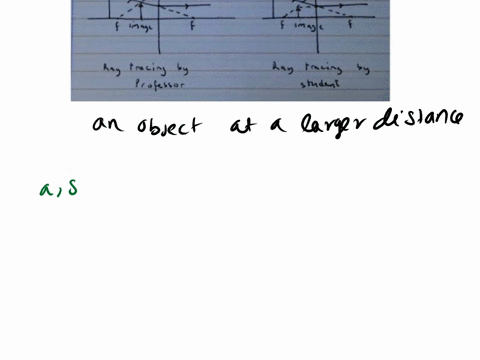 f image f f image f
Ray tracing by Ray tracing by
Professor student
an object at a larger distance
a, s